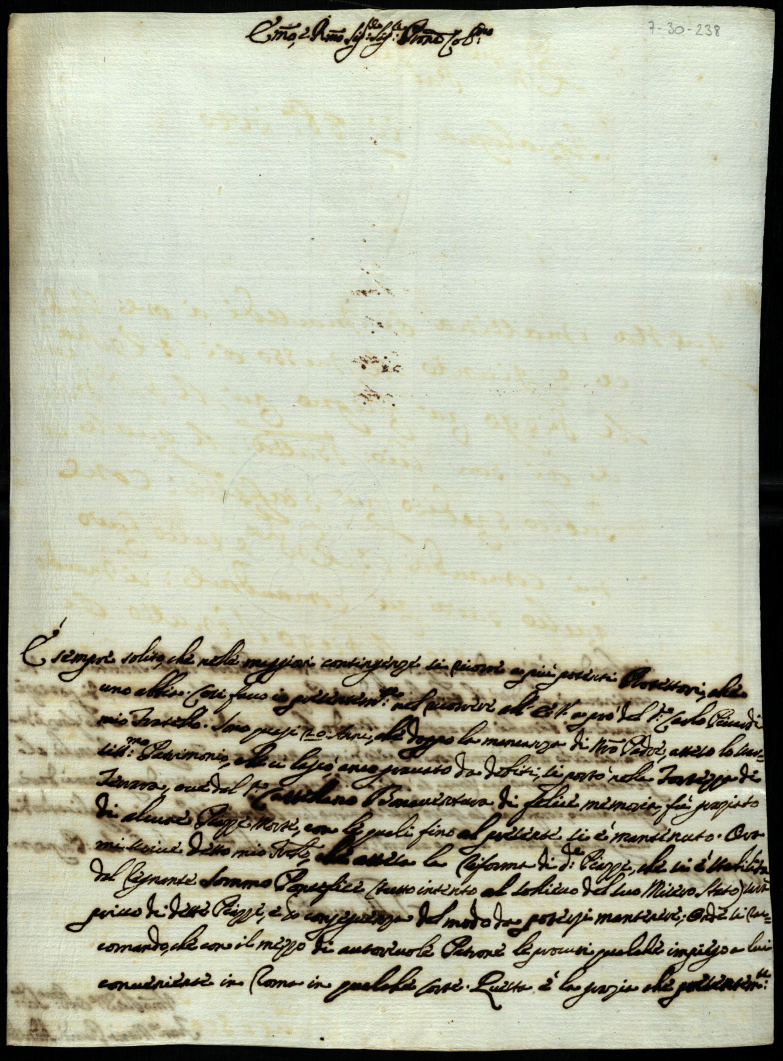 7-30-238
Em̃o, e Rm̃o Sig.r Sig.r Pne Col.mo
È sempre solito, che nelle maggiori contingenze si ricorre a più potenti Protettori, che
uno abbia. Così faccio io presentem.te nel ricorrere all' E. V. a prò del S.r Carlo
mio Fratello. Sono quasi 20 Anni, che doppo la mancanza di Nr̃o Padre, atteso lo
Patrimonio, che ci lasciò, anco gravato da debiti, si portò nella Fortezza di
Ferrara, ove dal Castellano Bonaventura di felice memoria, fù graziato
di alcune Piazze Morte, con le quali fino al presente si è mantenuto. Ora
mi scrive detto mio Frlo, che attesa la Riforma di d.e Piazze, che si è stabilita
dal Regnante Sommo Pontefice (tutto intento al sollievo del suo Misero Stato)
privo di dette Piazze, e in conseguenza del modo da potersi mantenere; Onde si rac-
comanda, che con il mezzo di autorevole Padrone le procuri qualche impiego a lui
conveniente in Roma in qualche Corte. Questa è la grazia che presentem.te